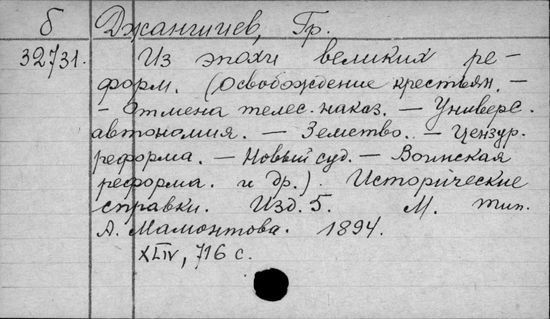 б Джаншиев, Гр.
32731. Из эпохи великих ре-
форм. (Освобождение крестьян. –
– Отмена телес. наказ. – Универс.
автономия. – Земство. – Цензур.
реформа. – Новый суд. – Воинская
реформа. и др.) Исторические
справки. Изд. 5. М. тип.
А. Мамонтова. 1894.
XLIV, 716 с.